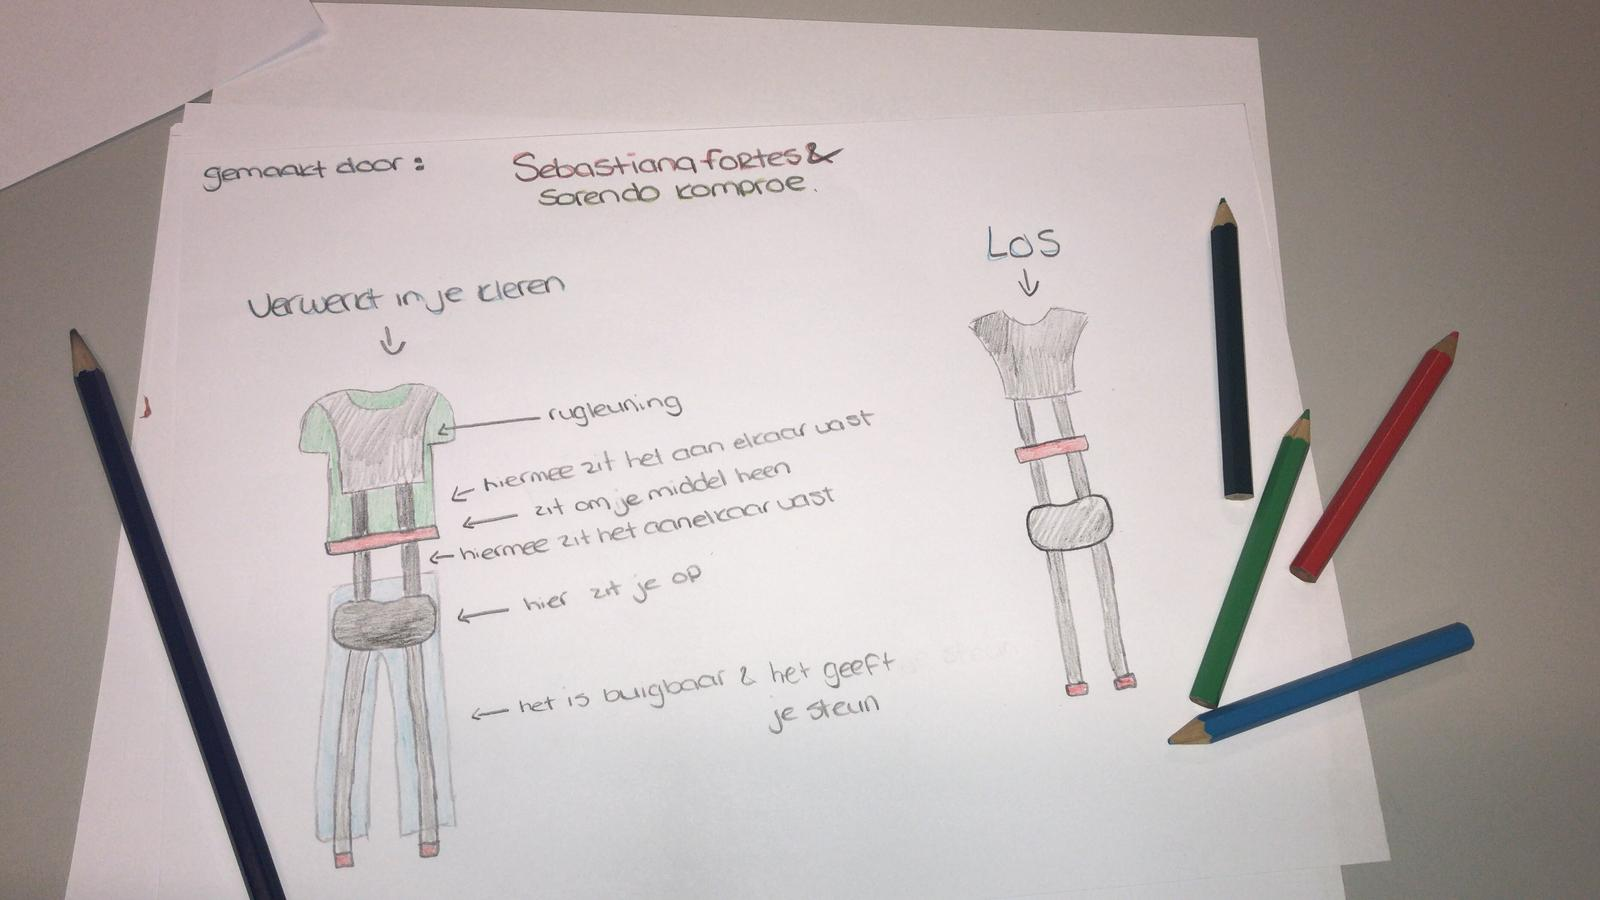 gemaakt door:
Sebastiana fortes &
Sorendo komproe.
Verwerkt in je kleren
LOS
rugleuning
hiermee zit het aan elkaar vast
zit om je middel heen
hiermee zit het aanelkaar vast
hier zit je op
het is buigbaar & het geeft
je steun